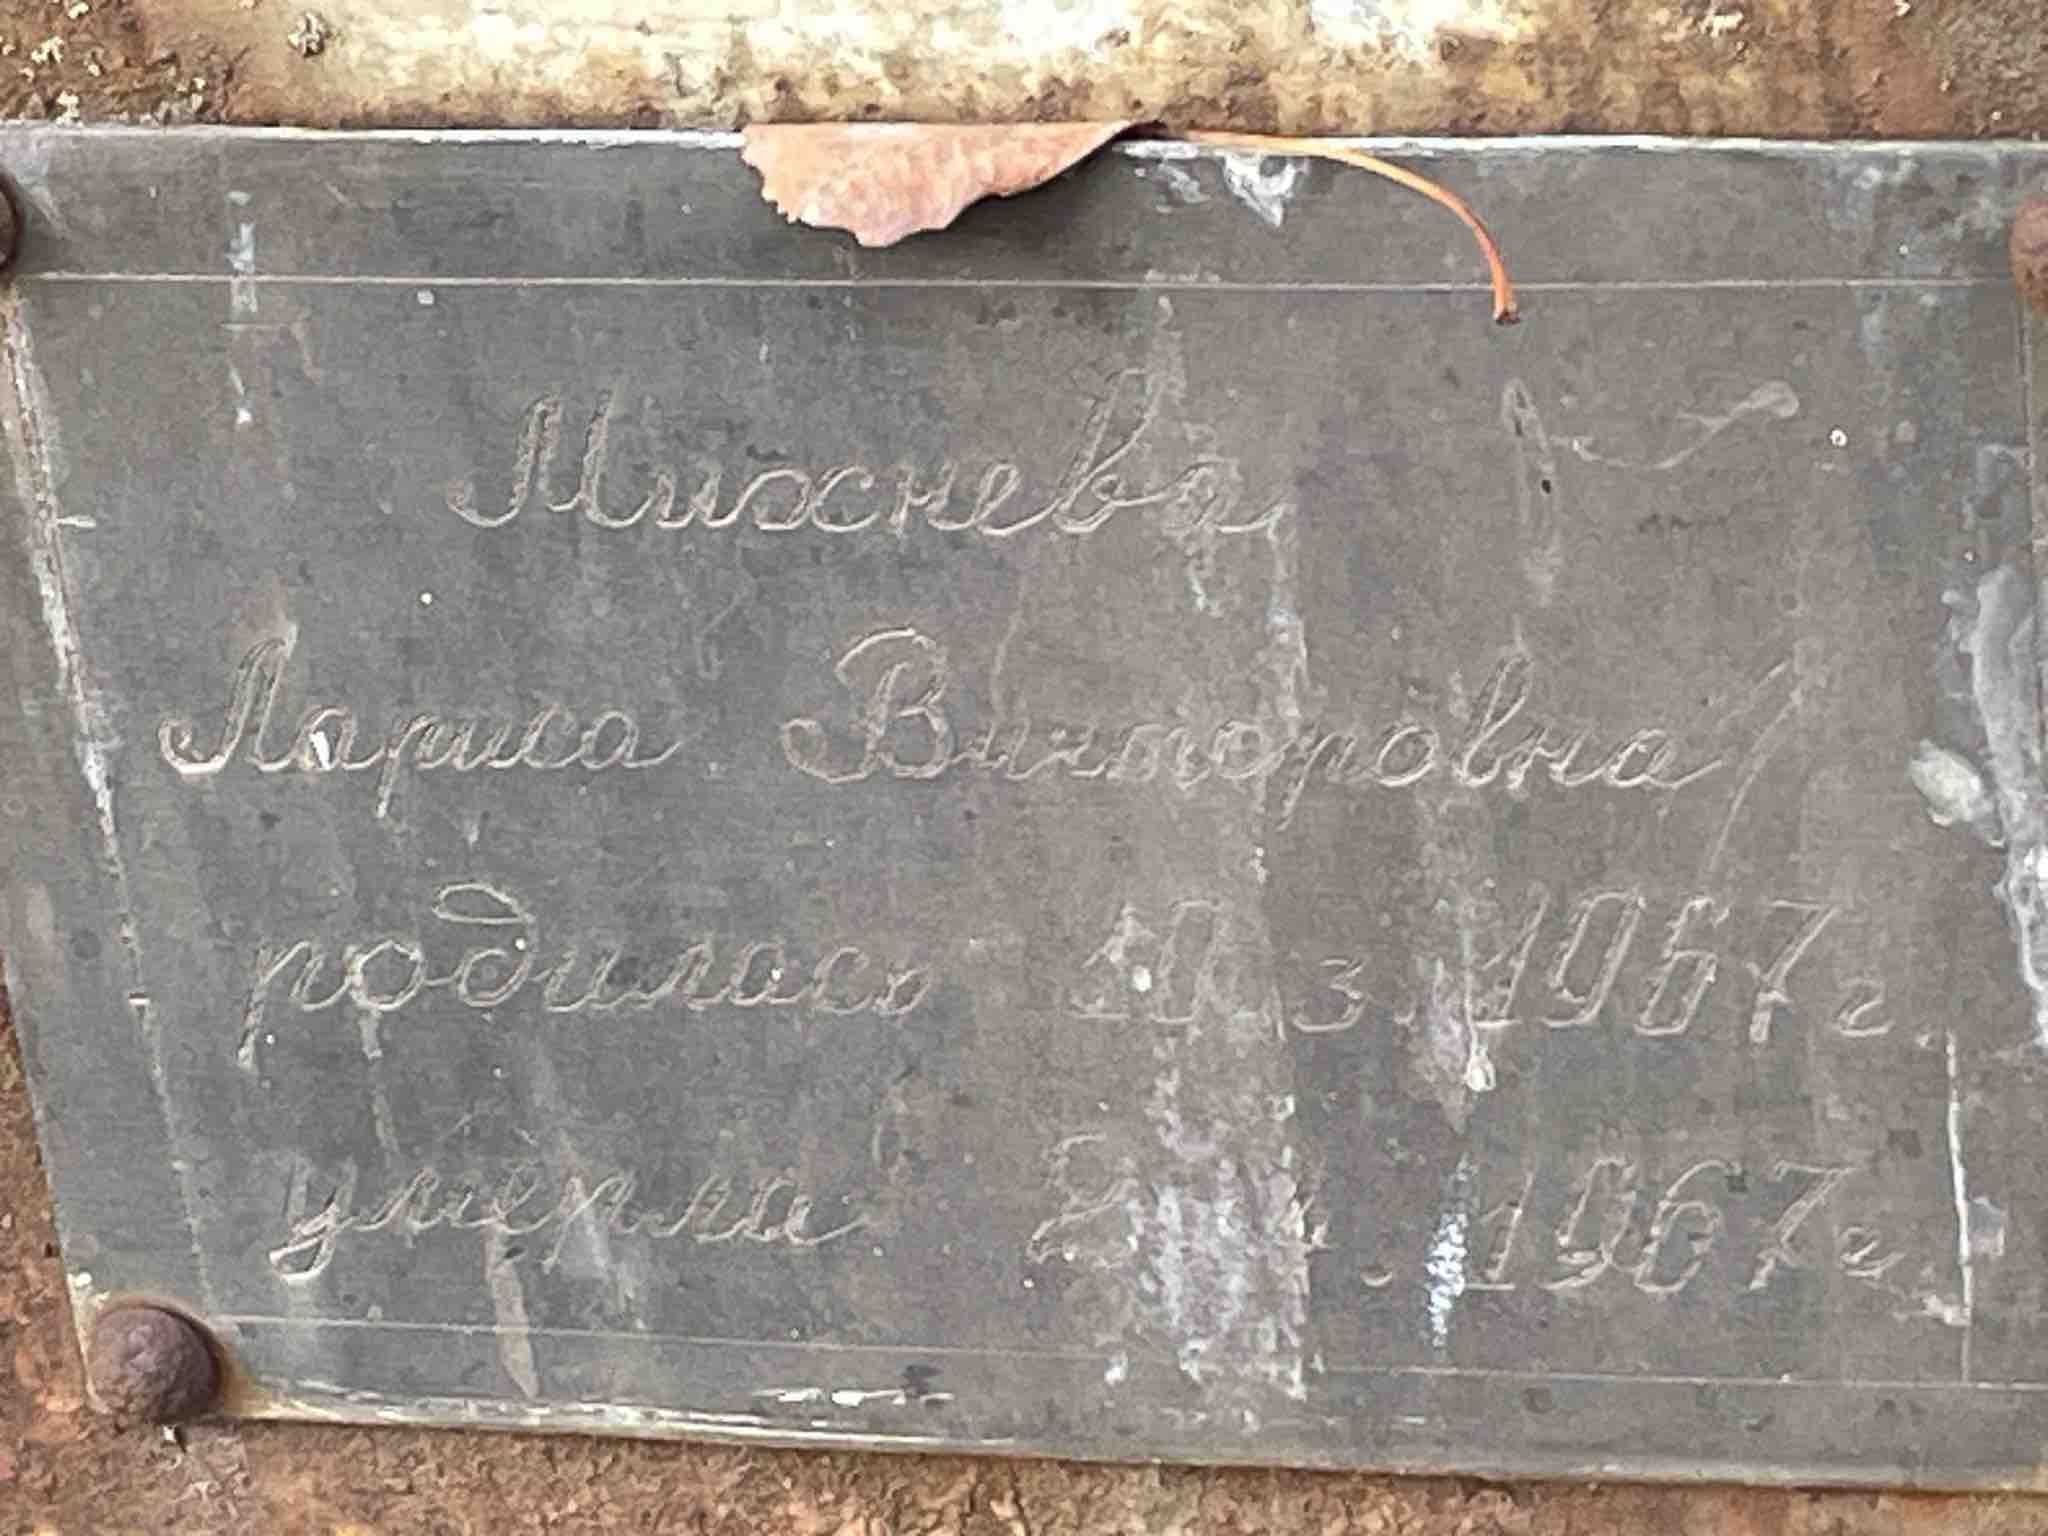 Михнева
Лариса Викторовна
родилась 10.3.1967г.
умерла 1967г.